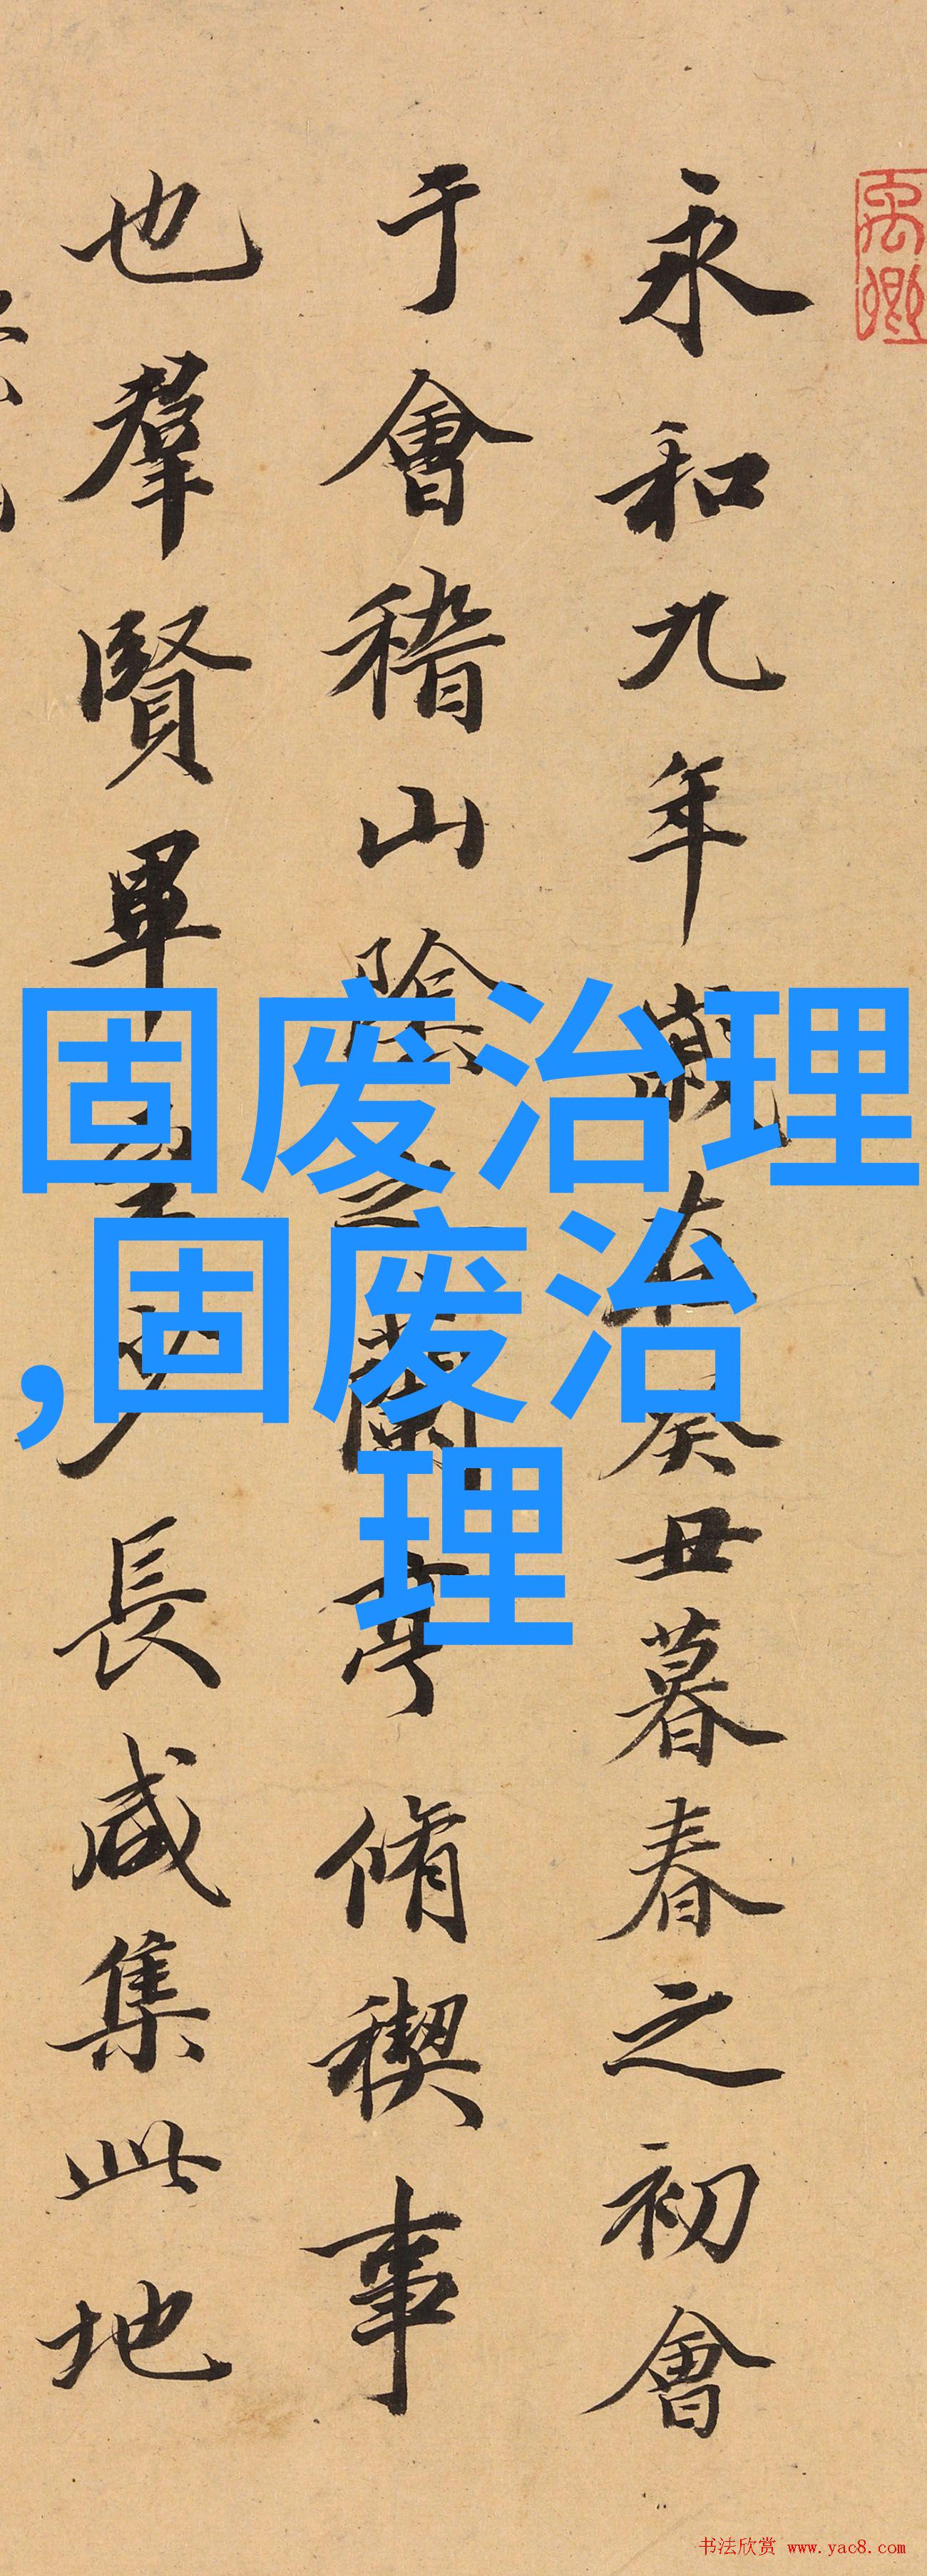 永和九年歲在癸丑暮春之初會
于會稽山陰之蘭亭脩稧事
也羣賢畢至少長咸集此地
固废治理
,固废治
理
书法欣赏 www.yac8.com